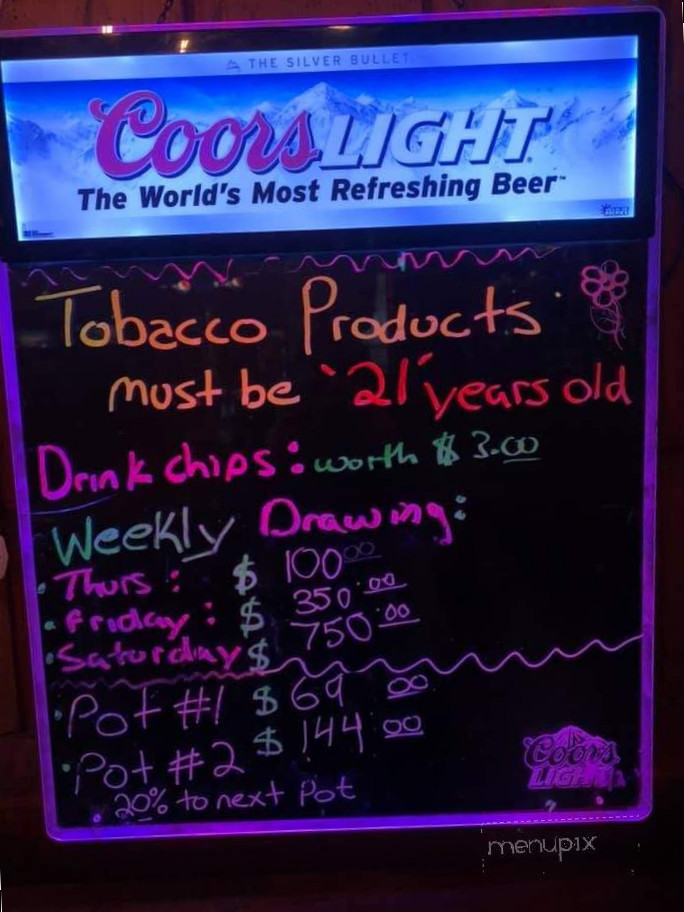 THE SILVER BULLET
Coors LIGHT
The World's Most Refreshing Beer™
Tobacco Products
must be "21" years old
Drink chips: worth $ 3.00
Weekly Drawing:
• Thurs: $ 100.00
• Friday: $ 350.00
• Saturday $ 750.00
• Pot #1 $ 69 00
• Pot #2 $ 144 00
20% to next Pot
Coors
LIGHT
menupix